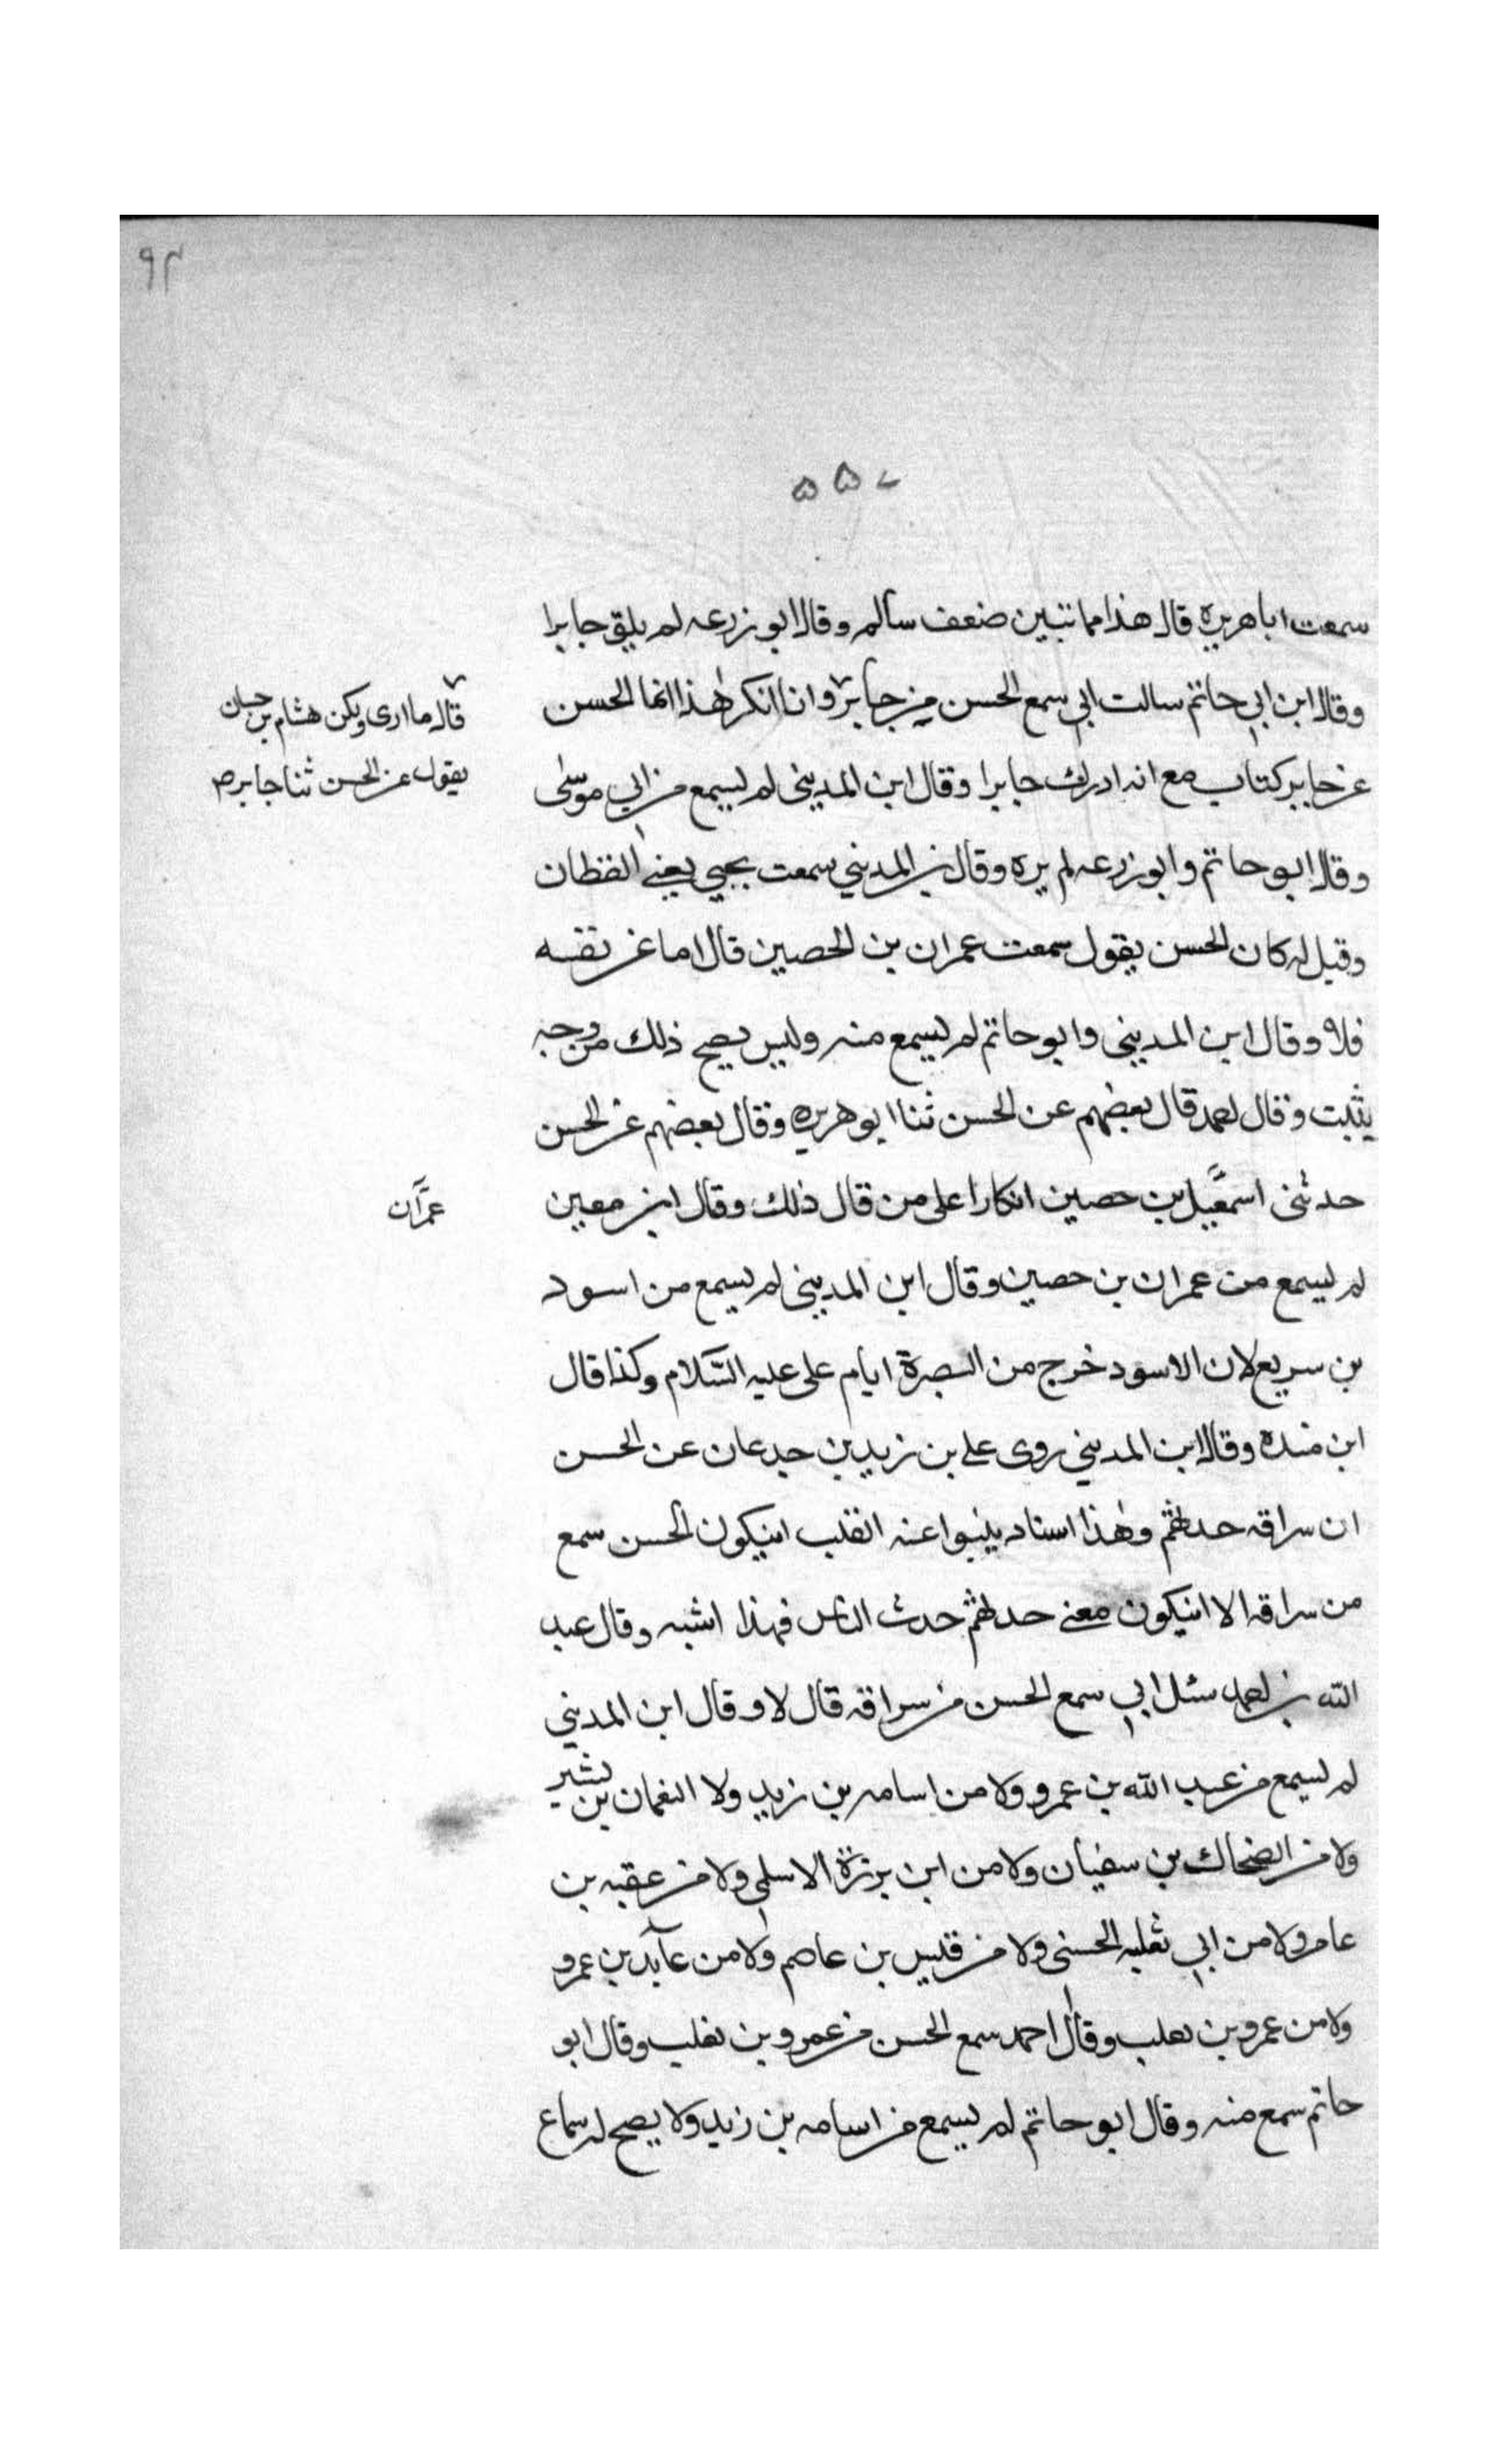 ٩٢
٥٥٧
سمعت ابا هريره قال هذا مما تبين ضعف سالم وقال ابو زرعه لم يلق جابرا
وقال ابن ابي حاتم سالت ابي سمع الحسن من جابر وانا انكر هذا انما الحسن
قال ما ارى ولكن هشام بن حسان
يقول عن الحسن ثنا جابر صح
عن جابر كتاب مع انه ادرك جابرا وقال ابن المديني لم يسمع من ابي موسى
وقال ابو حاتم وابو زرعه لم يره وقال بن المديني سمعت يحيي يعني القطان
وقيل له كان الحسن يقول سمعت عمران بن الحصين قال اما عن ثقته
فلا وقال ابن المديني وابو حاتم لم يسمع منه وليس يصح ذلك من وجه
يثبت وقال احمد قال بعضهم عن الحسن ثنا ابو هريره وقال بعضهم عن الحسن
حدثنى اسمعيل بن حصين انكارا على من قال ذلك وقال ابن معين
عمران
لم يسمع من عمران بن حصين وقال ابن المديني لم يسمع من اسود
بن سريع لان الاسود خرج من البصرة ايام على عليه السلام وكذا قال
ابن منده وقال ابن المديني روى على بن زيد بن جدعان عن الحسن
ان سراقه حدثهم وهذا اسناد ينبوا عنه القلب انيكون الحسن سمع
من سراقه الا انيكون معنے حدثهم حدث الناس فهذا اشبه وقال عبد
الله بن احمد سئل ابي سمع الحسن من سراقه قال لا وقال ابن المديني
لم يسمع من عبد الله بن عمرو ولا من اسامه بن زيد ولا النعمان بن بشير
ولا من الضحاك بن سفيان ولا من ابن برزة الاسلمى ولا من عقبه بن
عامر ولا من ابي ثعلبه الحسنى ولا من قيس بن عاصم ولا من عآيد بن عمرو
ولا من عمرو بن تعلب وقال احمد سمع الحسن من عمرو بن تغلب وقال ابو
حاتم سمع منه وقال ابو حاتم لم يسمع من اسامه بن زيد ولا يصح له سماع